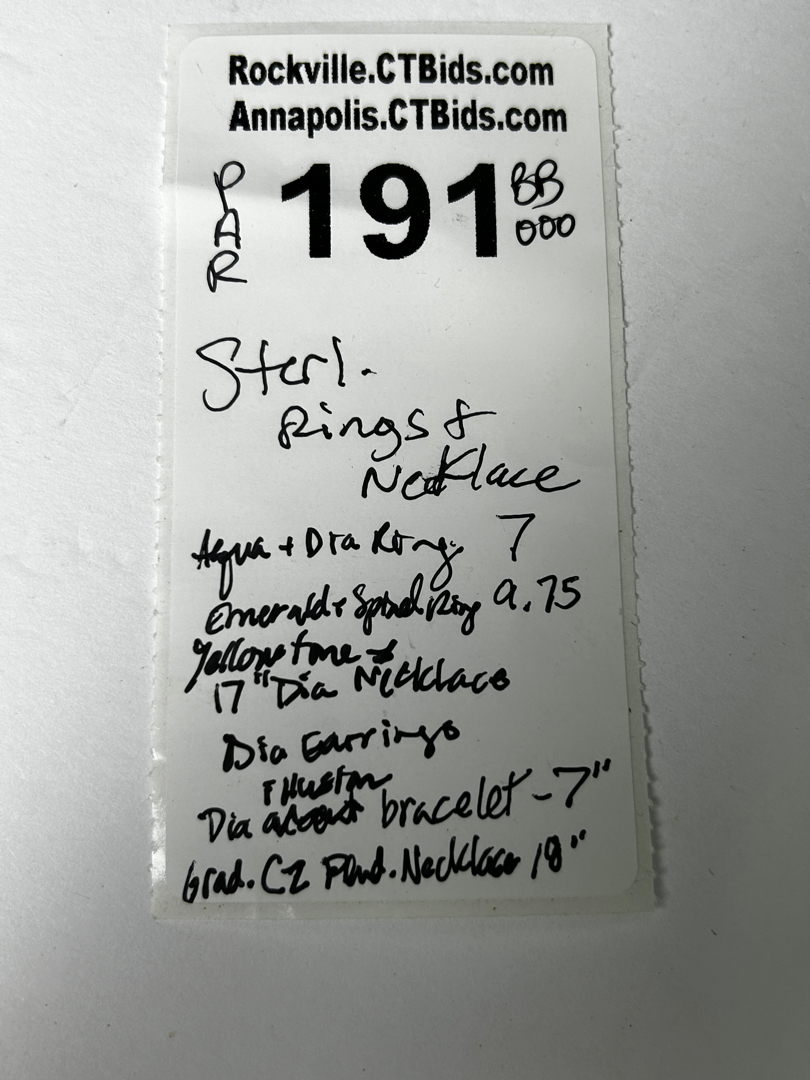 Rockville.CTBids.com
Annapolis.CTBids.com
PAR 191 BB 000
Sterl.
Rings &
Necklace
Aqua + Dia Ring 7
Emerald + Spinel Ring 9.75
Yellow
17" Dia Necklace
Dia Earrings
Dia accent bracelet - 7"
Grad. CZ Necklace 18"